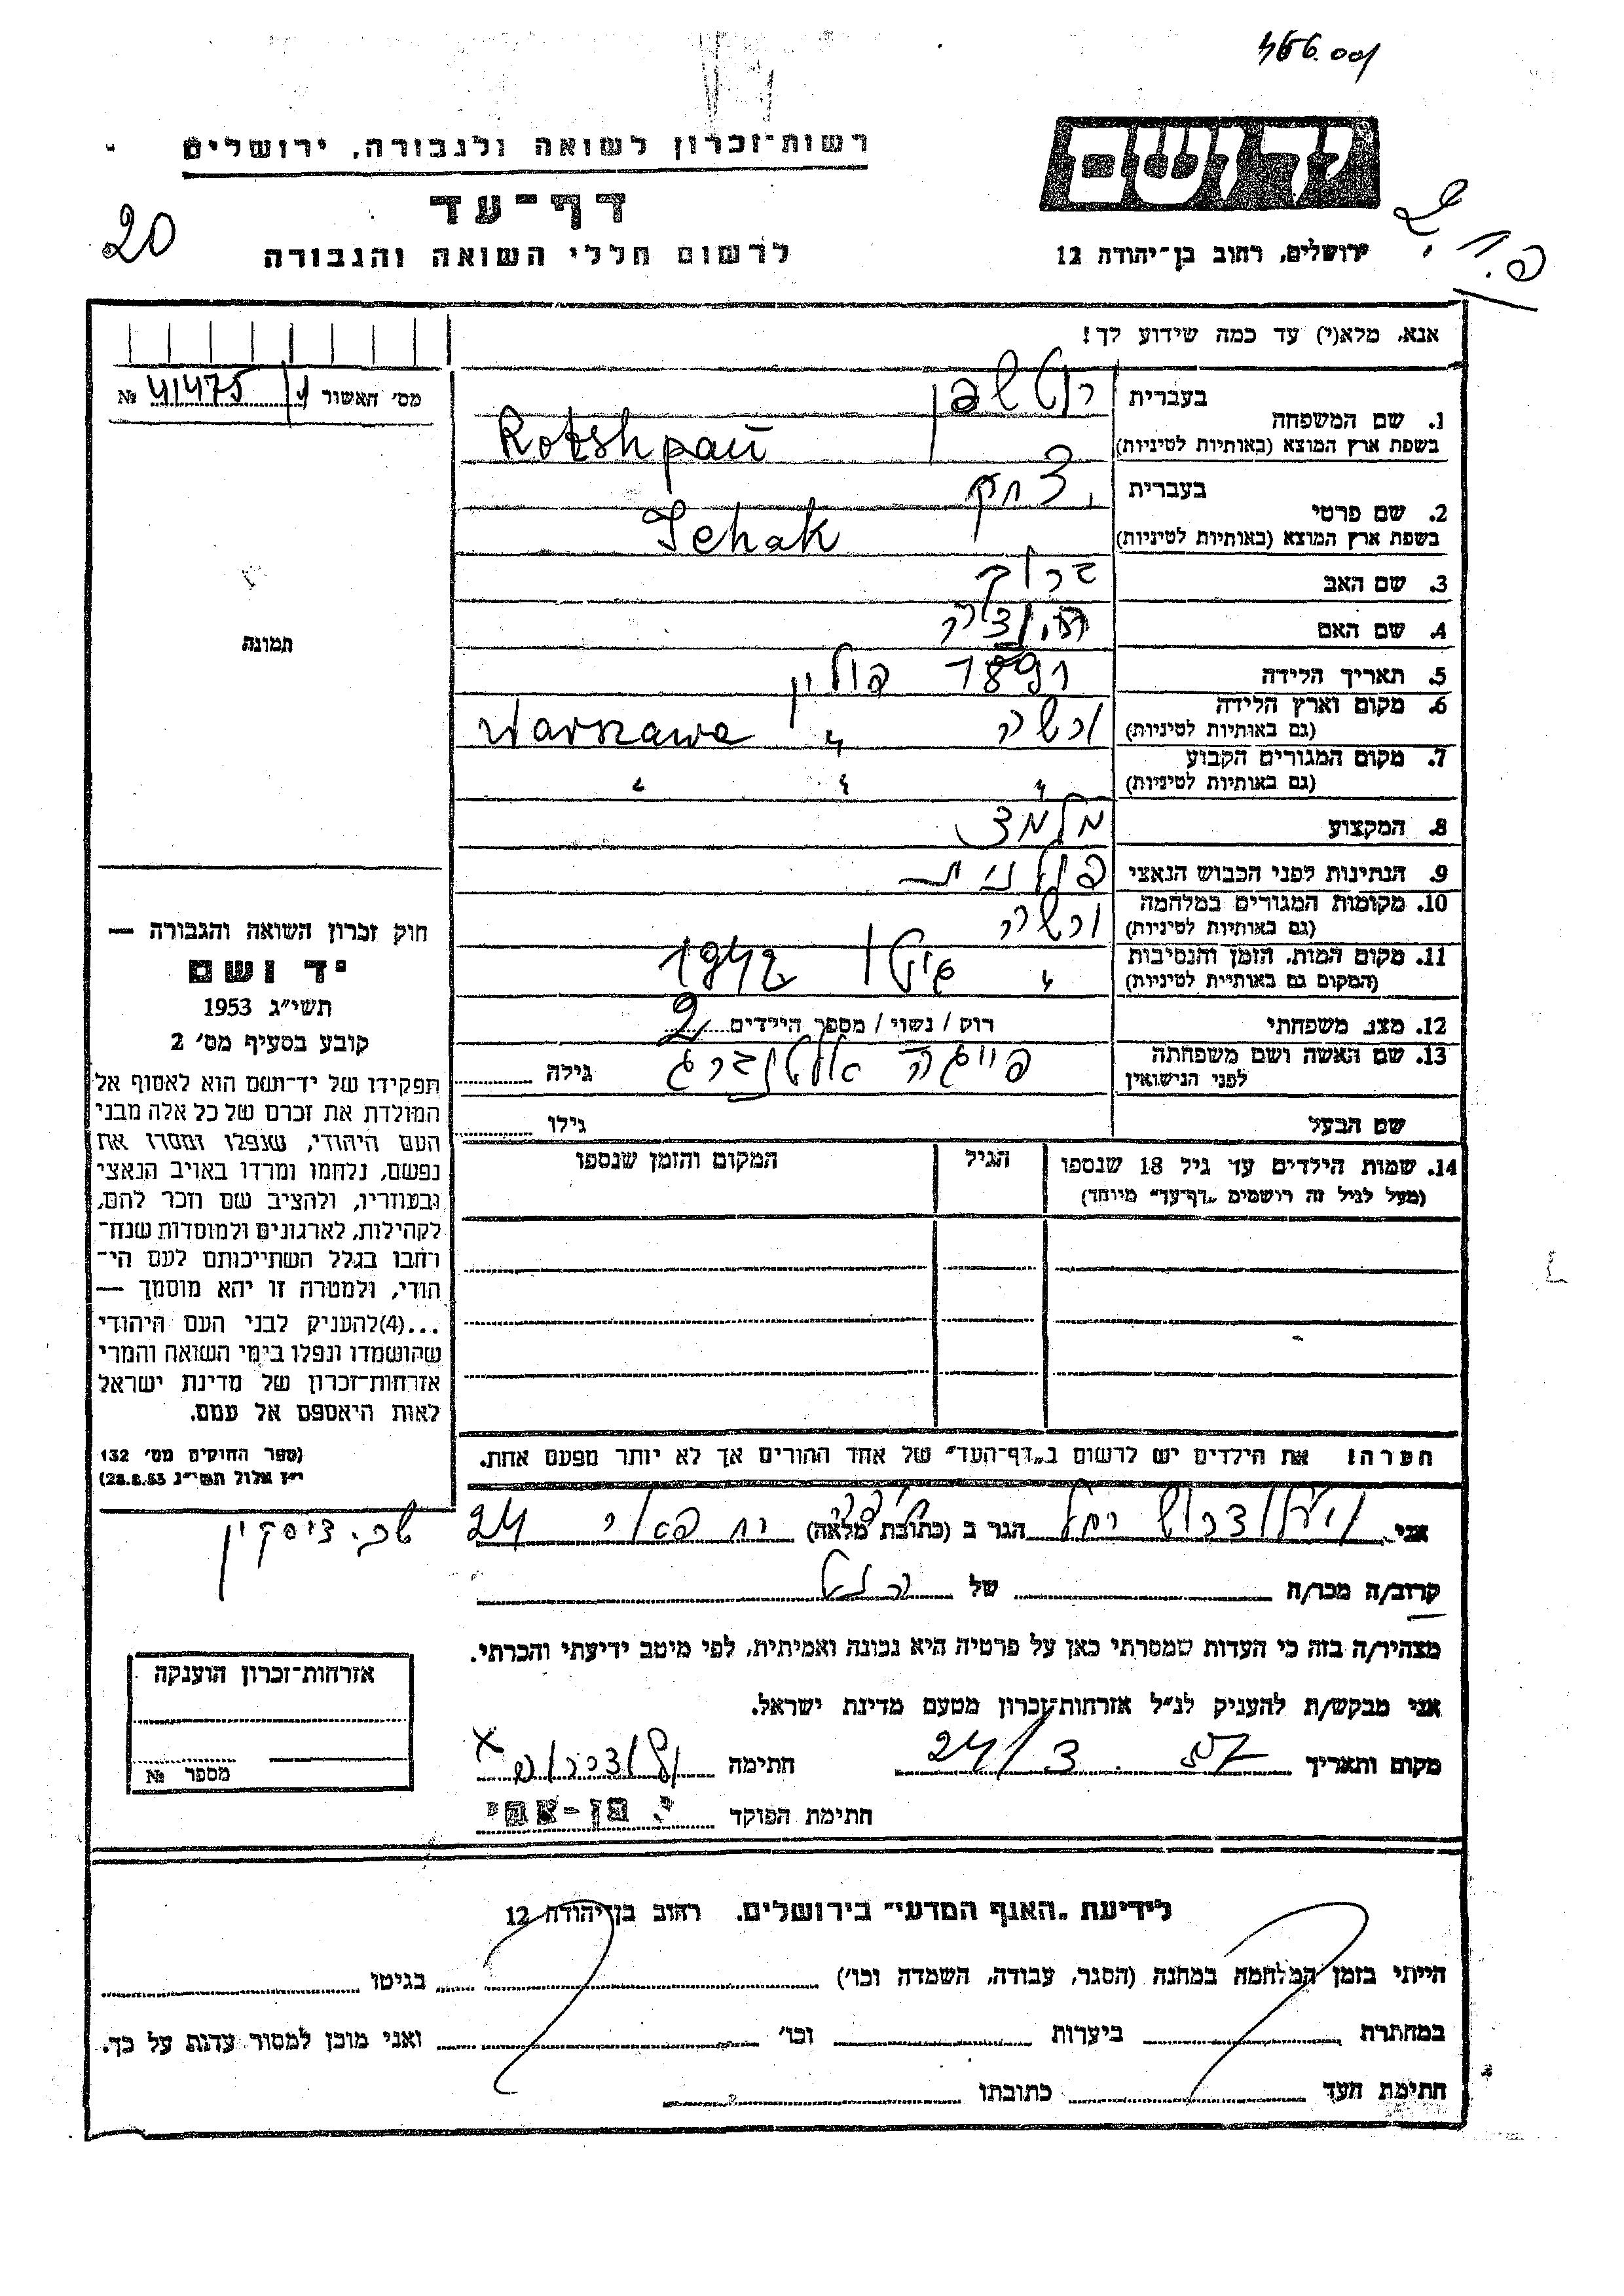 466.001
רשות־זכרון לשואה ולגבורה, ירושלים
יד ושם
דף־עד
20
לרשום חללי השואה והגבורה
ירושלים, רחוב בן־יהודה 12
אנא, מלא(י) עד כמה שידוע לך!
מס' האשור 41475 №
1. שם המשפחה בעברית רוטשפן
בשפת ארץ המוצא (באותיות לטיניות) Rotshpan
2. שם פרטי בעברית יצחק
בשפת ארץ המוצא (באותיות לטיניות) Ichak
3. שם האב ברוך
4. שם האם
5. תאריך הלידה 1897 פולין
6. מקום וארץ הלידה (גם באותיות לטיניות) ורשה " Warszawa
7. מקום המגורים הקבוע (גם באותיות לטיניות) " " "
8. המקצוע מלמד
9. הנתינות לפני הכבוש הנאצי פולנית
10. מקומות המגורים במלחמה (גם באותיות לטיניות) ורשה
11. מקום המות, הזמן והנסיבות (המקום גם באותיית לטיניות) " גיטו 1942
12. מצב משפחתי רוק / נשוי / מספר הילדים 2
13. שם האשה ושם משפחתה לפני הנישואין פייגה אלטנברג גילה
שם הבעל גילו
14. שמות הילדים עד גיל 18 שנספו הגיל המקום והזמן שנספו
(מעל לגיל זה רושמים „דף־עד" מיוחד)
הערה! את הילדים יש לרשום ב„דף־העד" של אחד ההורים אך לא יותר מפעם אחת.
תמונה
חוק זכרון השואה והגבורה —
יד ושם
תשי״ג 1953
קובע בסעיף מס' 2
תפקידו של יד־ושם הוא לאסוף אל
המולדת את זכרם של כל אלה מבני
העם היהודי, שנפלו ומסרו את
נפשם, נלחמו ומרדו באויב הנאצי
ובעוזריו, ולהציב שם וזכר להם,
לקהילות, לארגונים ולמוסדות שנח־
רחבו בגלל השתייכותם לעם הי־
הודי, ולמטרה זו יהא מוסמך —
...(4)להעניק לבני העם היהודי
שהושמדו ונפלו בימי השואה והמרי
אזרחות־זכרון של מדינת ישראל
לאות היאספם אל עמם.
(ספר החוקים מס' 132
י״ז אלול תשי״ג 28.8.53)
אני רחל הגר ב (כתובת מלאה) חיפה 24
שכ. דיסקין
קרוב/ה מכר/ה של
מצהיר/ה בזה כי העדות שמסרתי כאן על פרטיה היא נכונה ואמיתית, לפי מיטב ידיעתי והכרתי.
אני מבקש/ת להעניק לנ״ל אזרחות־זכרון מטעם מדינת ישראל.
מקום ותאריך 24/3 חתימה
חתימת הפוקד י. בן-עמי
אזרחות־זכרון הוענקה
מספר №
לידיעת „האגף המדעי" בירושלים. רחוב בן־יהודה 12
הייתי בזמן המלחמה במחנה (הסגר, עבודה, השמדה וכו') בגיטו
במחתרת ביערות וכו' ואני מוכן למסור עדות על כך.
חתימת העד כתובתו